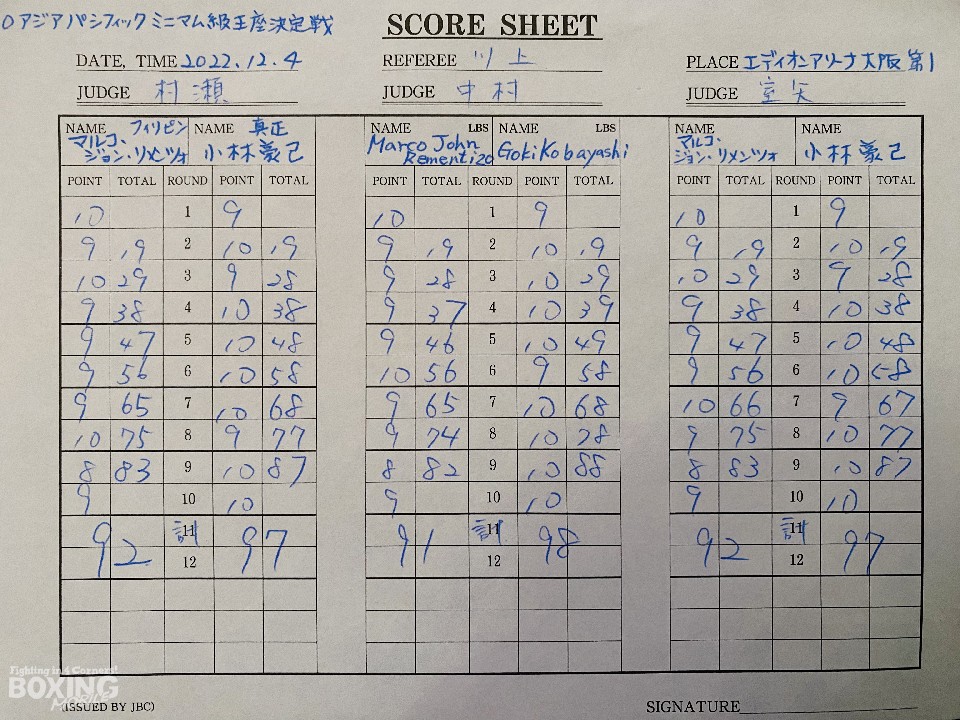 O アジアパシフィック ミニマム級王座決定戦
SCORE SHEET
DATE, TIME 2022.12.4 REFEREE 川上 PLACE エディオンアリーナ大阪 第1
JUDGE 村瀬 JUDGE 中村 JUDGE 室矢
NAME フィリピン NAME 真正 NAME LBS NAME LBS NAME NAME
マルコ・ジョン・リメンツォ 小林豪己 Marco John Rementizo Goki Kobayashi マルコ・ジョン・リメンツォ 小林豪己
POINT TOTAL ROUND POINT TOTAL POINT TOTAL ROUND POINT TOTAL POINT TOTAL ROUND POINT TOTAL
10 1 9 10 1 9 10 1 9
9 19 2 10 19 9 19 2 10 19 9 19 2 10 19
10 29 3 9 28 9 28 3 10 29 10 29 3 9 28
9 38 4 10 38 9 37 4 10 39 9 38 4 10 38
9 47 5 10 48 9 46 5 10 49 9 47 5 10 48
9 56 6 10 58 10 56 6 9 58 9 56 6 10 58
9 65 7 10 68 9 65 7 10 68 10 66 7 9 67
10 75 8 9 77 9 74 8 10 78 9 75 8 10 77
8 83 9 10 87 8 82 9 10 88 8 83 9 10 87
9 10 10 9 10 10 9 10 10
92 11 計 97 91 11 計 98 92 11 計 97
12 12 12
Fighting in 4 Corners!
BOXING
Mobile
(ISSUED BY JBC) SIGNATURE